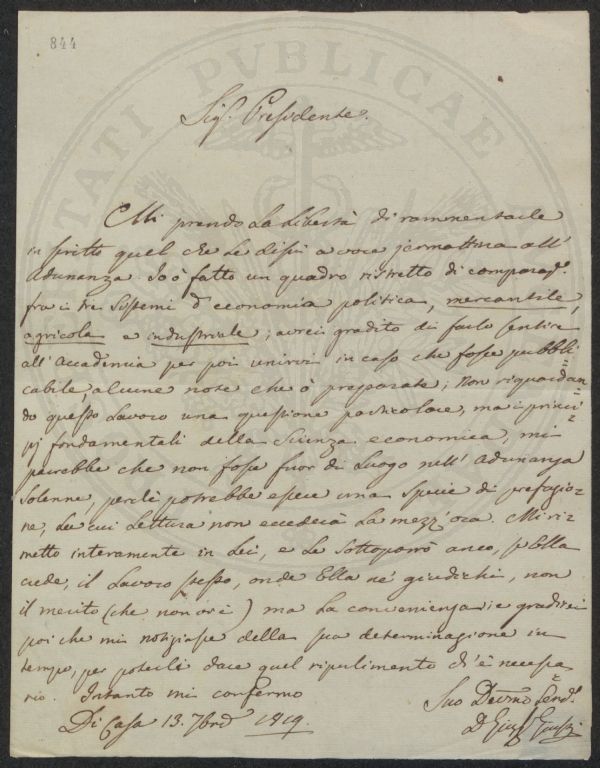 844
Sig.r Presidente.
Mi prendo la libertà di rammentarle
in scritto quel che le dissi a voce jermattina all'
adunanza. Io ò fatto un quadro ristretto di comparaz.e
fra i tre sistemi d'economia politica, mercantile,
agricola e industriale; avrei gradito di farlo sentire
all'Accademia per poi unirvi in caso che fosse pubbli
cabile, alcune note che ò preparate; non riguardan
do questo lavoro una questione particolare, ma i princi
pj fondamentali della scienza economica, mi
parrebbe che non fosse fuor di luogo nell'adunanza
solenne, perchè potrebbe essere una specie di prefazio
ne, la cui lettura non eccederà la mezz'ora. Mi ri
metto interamente in Lei, e le sottoporrò anco, s'Ella
crede, il lavoro stesso, onde Ella ne giudichi, non
il merito (che non v'è) ma la convenienza; e gradirei
poi che mi notiziasse della sua determinazione in
tempo, per poterli dare quel ripulimento ch'è necessa
rio. Intanto mi confermo
Di Casa 13. 7bre 1819.
Suo Devmo Serv.e
D
PUBLICAE